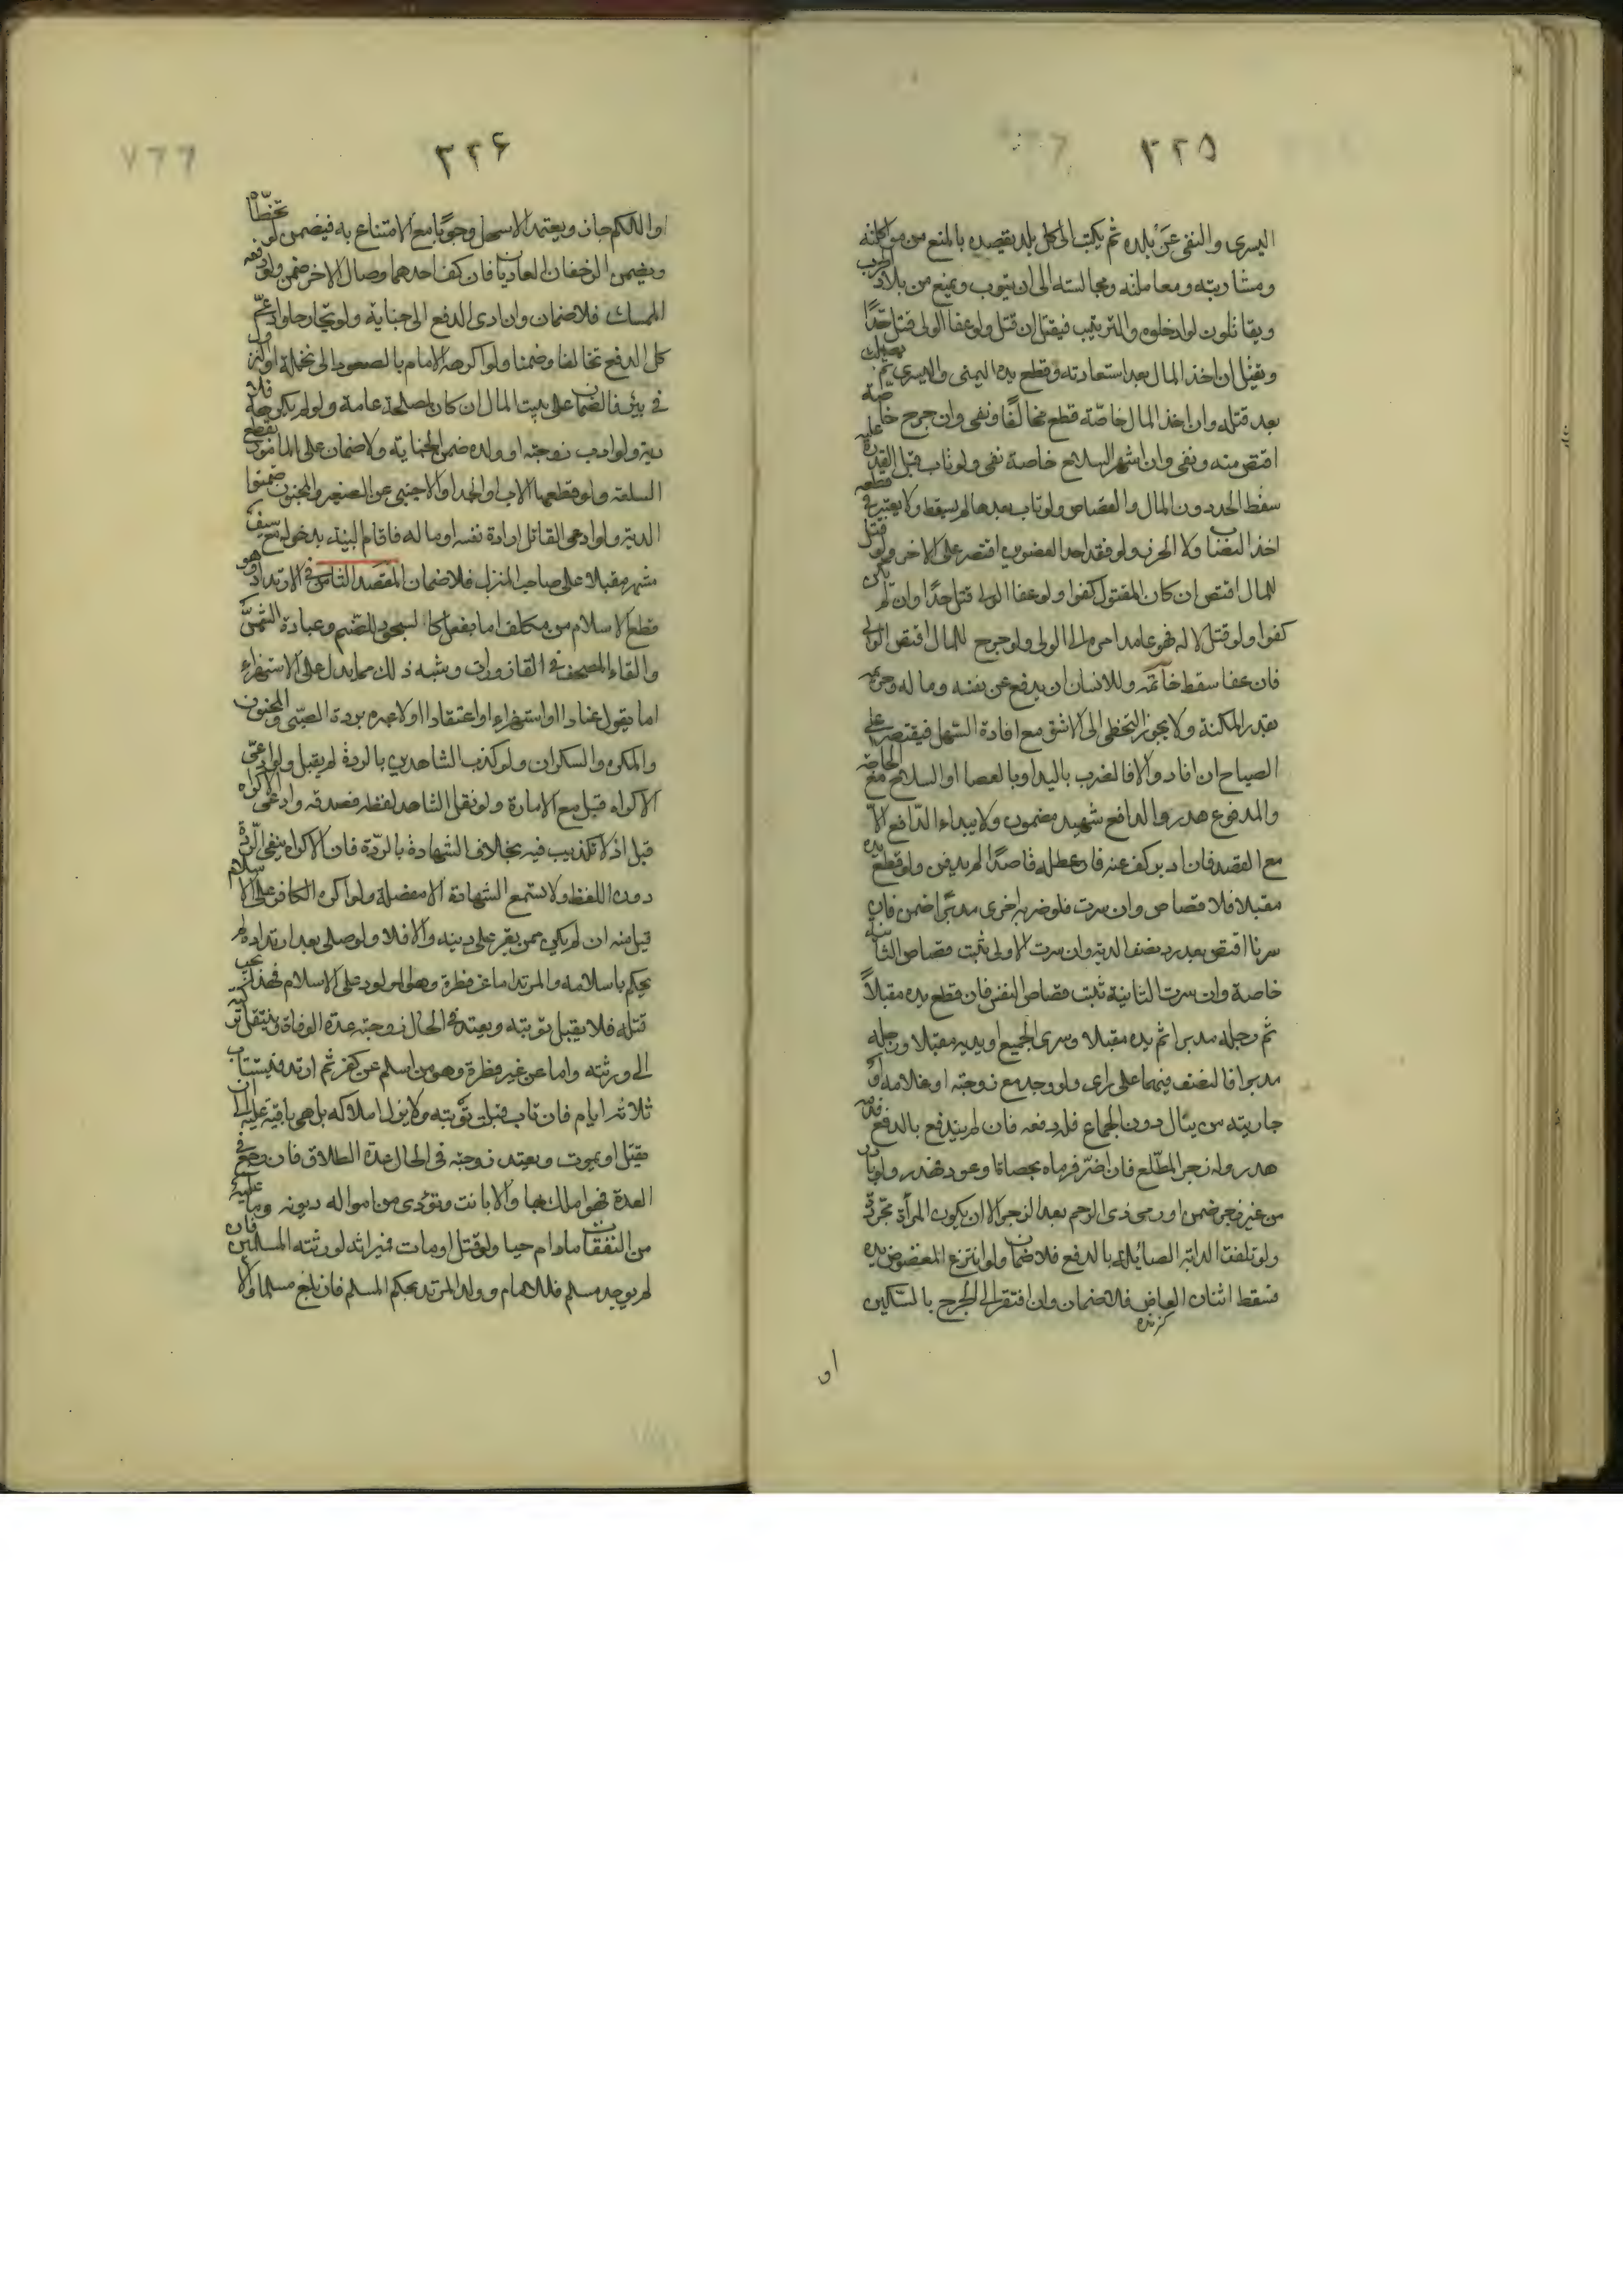 ٣٢٥
اليسرى والنفى عن بلده ثم يكتب الى كل بلد يقصده بالمنع من مواكلته
ومشاربته ومعاملته ومجالسته الى ان يتوب ويمنع من بلاد الحرب
ويقاتلون لو ادخلوه والمترتيب فيقتل ان قتل ولو عفا الولى قتل حدًا
ويقتل ان اخذ المال بعد استعادته وقطع يده اليمنى واليسرى ثم يصلب
بعد قتله وان اخذ المال خاصّة قطع مخالفًا ونفى وان جرح خاصة
اقتص منه ونفى وان اشهر السلاح خاصة نفى ولو تاب قبل القدرة عليه
سقط الحد دون المال والقصاص ولو تاب بعدها لم يسقط ولا يعتبر فى قطعه
اخذ النصاب ولا الحرز ولو فقد احد العضوين اقتصر على الاخر ولو قتل
للمال اقتص ان كان المقتول كفوا ولو عفا الولى قتل حدًا وان لم يكن
كفوا ولو قتل لا له فهو عامد امره الى الولى ولو جرح للمال اقتص الولى
فان عفا سقط خاتمة وللانسان ان يدفع عن نفسه وماله وحريمه
بقدر المكنة ولا يجوز التخطى الى الاشق مع افادة السهل فيقتصر على
الصياح ان افاد والا فالضرب باليد او بالعصا او السلاح مع الحاجة
والمدفوع هدر والدافع شهيد مضمون ولا يبداء الدافع الا
مع القصد فان ادبر كف عنه فان عطله قاصدًا لم يدفن ولو قطع يده
مقبلا فلا قصاص وان سرت فلو ضربه اخرى مدبرًا ضمن فان
سرتا اقتص بعد رد نصف الدية وان سرت الاولى ثبت قصاص الثانية
خاصة وان سرت الثانية ثبت قصاص النفس فان قطع يده مقبلاً
ثم رجله مدبرا ثم يده مقبلا وسرى الجميع او يديه مقبلا ورجله
مدبرا فالنصف فيهما على راى ولو وجد مع زوجته او غلامه او
جاريته من ينال دون الجماع فله دفعه فان لم يندفع بالدفع
هدر وله زجر المطّلع فان اضّر فرماه بحصاة او عود فهدر ولو بادر
من غير زجر ضمن او رمى ذى الرحم بعد الزجر الا ان يكون المرأة مجردة
ولو تلفت الدابة الصائلة بالدفع فلا ضمان ولو انتزع المعضوض يده
فسقط اسنان العاض فلا ضمان وان افتقر الى الجرح بالسكين
كزنده
او
٣٢۶
او اللكم جاز ويعتمد الاسهل وجوبًا مع الامتناع به فيضمن لو تخطّاه
ويضمن الزحفان العاديان فان كف احدهما وصال الاخر ضمن ولو دفعه
الممسك فلا ضمان وان ادى الدفع الى جناية ولو تجارحا وادعى
كل الدفع تحالفا وضمنا ولو اكرهه الامام بالصعود الى نخلة او النزول
فى بئر فالضمان على بيت المال ان كان لمصلحة عامة ولو لم يكرهه فلا
دية ولو ادب زوجته او ولده ضمن الجناية ولا ضمان على المامور بقطع
السلعة ولو قطعها الاب او الجد او الاجنبى عن الصغير والمجنون ضمنوا
الدية ولو ادعى القاتل ارادة نفسه او ماله فاقام البينة بدخوله مع سيف
مشهر مقبلا على صاحب المنزل فلا ضمان المقصد الثامن فى الارتداد وهو
قطع الاسلام من مكلف اما بفعل كالسجود للصنم وعبادة الشمس
والقاء المصحف فى القاذورات وشبه ذلك مما يدل على الاستهزاء
اما بقول عنادا او استهزاء او اعتقادا ولا عبرة بردة الصبى والمجنون
والمكره والسكران ولو كذب الشاهدين بالردة لم يقبل ولو ادعى
الاكراه قبل مع الامارة ولو نقل الشاهد لفظه فصدقه وادعى الاكراه
قبل اذ لا تكذيب فيه بخلاف الشهادة بالردّة فان الاكراه ينفى الردّة
دون اللفظ ولا تسمع الشهادة الا مفصلة ولو اكره الكافر على الاسلام
قبل منه ان لم يكن ممن يقر على دينه والا فلا ولو صلى بعد ارتداده لم
يحكم باسلامه والمرتد اما عن فطرة وهو المولود على الاسلام فهذا يجب
قتله فلا يقبل توبته ويعتد فى الحال زوجته عدة الوفاة وينتقل تركته
الى ورثته واما عن غير فطرة وهو من اسلم عن كفر ثم ارتد فيستتاب
ثلاثة ايام فان تاب قبلت توبته ولا يزول املاكه بل هى باقية عليه الى ان
يقتل او يموت ويعتد زوجته فى الحال عدة الطلاق فان رجع فى
العدة فهو املك بها والا بانت وتؤدى من امواله ديونه وما عليه
من النفقات مادام حيا ولو قتل او مات فميراثه لورثته المسلمين فان
لم يوجد مسلم فللامام وولد المرتد بحكم المسلم فان بلغ مسلما والا